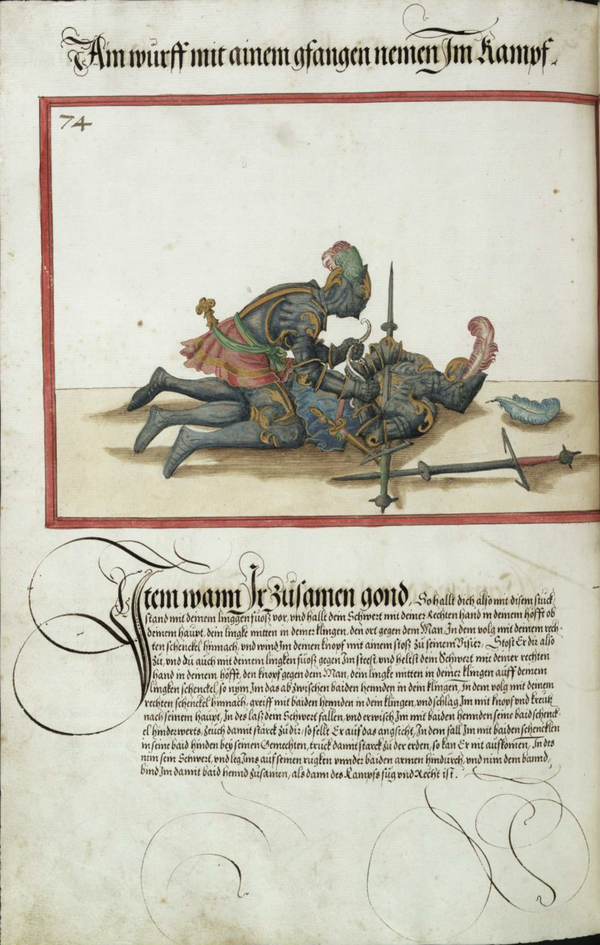 Am wurff mit ainem gfangen nemen Im Kampf.
74
Item wann Ir zusamen gond, So hallt dich also mit disem stuck
stand mit deinem linggen fuosz vor, vnd hallt dein Schwert mit deiner Rechten hand in deinem höfft ob
deinem haupt, dein lingke mitten in deiner klingen, den ort gegen dem Man, In dem volg mit deinem rech-
ten schenckel hinnach, vnd wind Im deinen knopf mit ainem stosz zu seinem Visier, Stost Er dir also
zu, vnd du auch mit deinem lingken fuosz gegen Im steest vnd heltest dein Schwert mit deiner rechten
hand in deinem höfft, den knopf gegen dem Man, dein lingke mitten in deiner klingen auff deinem
lingken schenckel, so nym Im das ab zwischen baiden hennden in dein klingen, In dem volg mit deinem
rechten schenckel hinnach, greiff mit baiden hennden in dein klingen, vnd schlag Im mit knopf vnd kreutz
nach seinem haupt, In des lasz dein Schwert fallen, vnd erwisch Im mit baiden hennden seine baid schenck-
el hinderwerts, zeuch damit starck zu dir, so fellt Er auf das angsicht, In dem fall Im mit baiden schenncklen
in seine baid hinden bey seinen Gemechten, truck damit starck zu der erden, so kan Er nit aufkomen, In des
nim sein Schwert, vnd leg Ims auf seinen rugken vnnder baiden armen hindurch, vnd nim dein bannd,
bind Im damit baid hennd zusamen, als dann des Kampfs fug vnd Recht ist.